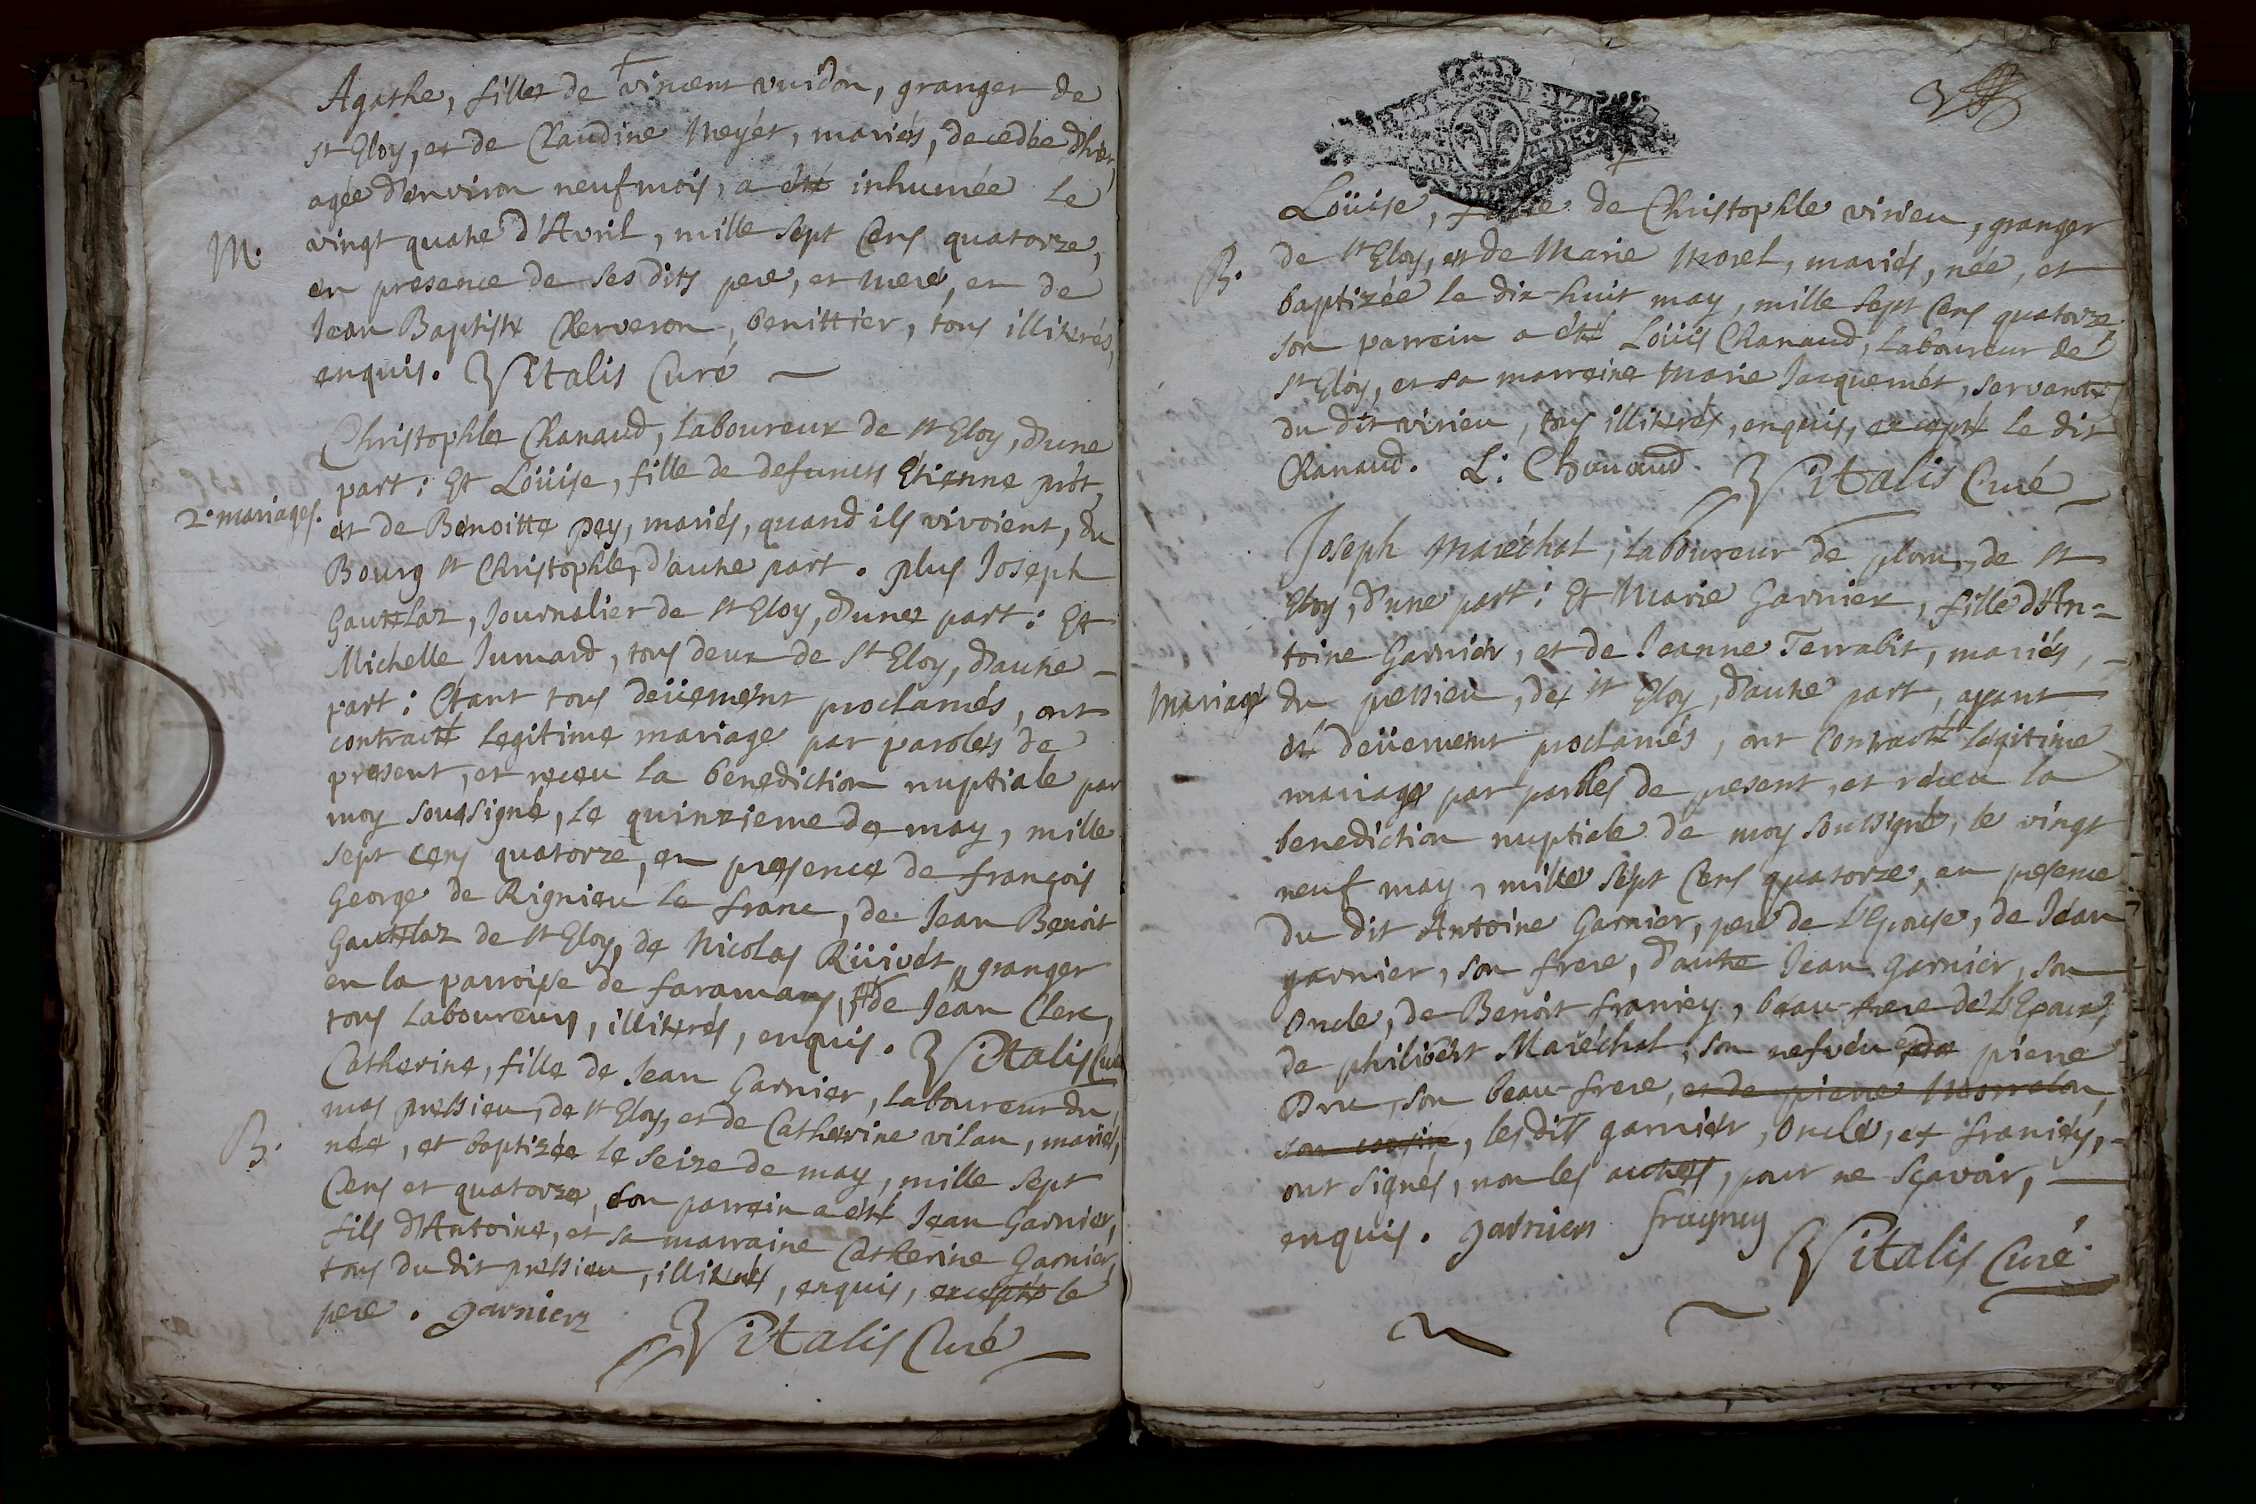 Agathe, fille de vincent vuidon, granger de
st Eloy, et de Claudine Meyét, mariés, decedée d'hier,
agée d'environ neuf mois, a été inhumée le
M. vingt quatre d'Avril, mille sept cens quatorze,
en presence de ses dits pere, et mere, et de
Jean Baptiste Cherveron, benittier, tous illiterés,
enquis. Vitalis Curé
Christophle Chanaud, laboureur de st Eloy, d'une
part : Et Loüise, fille de defuncts Etienne prôt,
2. mariages. et de Benoitte pey, mariés, quand ils vivoient, du
Bourg st Christophle, d'autre part. plus Joseph
Gauttlaz, Journalier de st Eloy, d'une part : Et
Michelle Jumard, tous deux de st Eloy, d'autre
part : Etant tous deüement proclamés, ont
contracté legitime mariage par paroles de
present, et receu la benediction nuptiale par
moy sousigné, le quinzieme de may, mille
sept cens quatorze, en presence de françois
George de Rignieu le franc, de Jean Benoit
Gauttlaz de st Eloy, de Nicolas Rüivét, granger
en la parroisse de faramans, et de Jean Clerc,
tous laboureurs, illiterés, enquis. Vitalis Curé
Catherine, fille de Jean Garnier, laboureur du
mas pressieu, de st Eloy, et de Catherine vilan, mariés,
B. née, et baptizée le seize de may, mille sept
Cens et quatorze, son parrein a été Jean Garnier,
fils d'Antoine, et sa marraine Catherine Garnier,
tous du dit pressieu, illiterés, enquis, excepté le
pere. garnierz
Vitalis Curé
Loüise, fille de Christophle virieu, granger
B. de st Eloy, et de Marie Morel, mariés, née, et
baptizée le dix-huit may, mille sept Cens quatorze,
son parrein a été Loüis Chanaud, laboureur de
st Eloy, et sa marreine Marie Jacquemét, servante
du dit virieu, tous illiterés, enquis, excepté le dit
Chanaud. L: Chanaud. Vitalis Curé
Joseph Maréchal, laboureur de de st
Eloy, d'une part : Et Marie Garnier, fille d'An=
toine Garnier, et de Jeanne Terrabit, mariés,
Mariage du pressieu, de st Eloy, d'autre part, ayant
été deüement proclamés, ont contracté legitime
mariage par parolles de present, et receu la
benediction nuptiale de moy soussigné, le vingt
neuf may, mille sept Cens quatorze, en presence
du dit Antoine Garnier, pere de l'Epouse, de Jean
garnier, son frere, d'autre Jean garnier, son
Oncle, de Benoit franiey, beau-frere de l'Epoux,
de philibért Maréchal, son nefveu, et de pierre
Dru, son beau-frere, et de pierre Morrelon,
son cousin, les dits garnier, Oncle, et franiéy,
ont signés, non les autres, pour ne sçavoir,
enquis. garnier frayney
Vitalis Curé